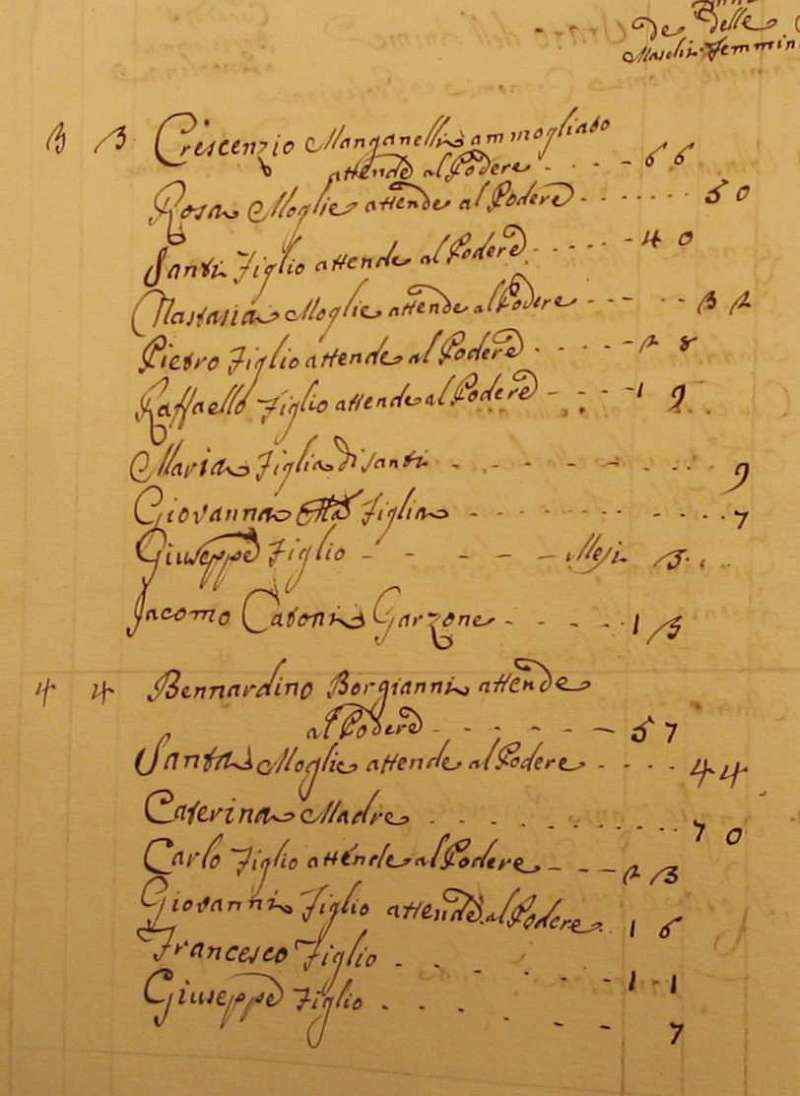 De Delle
Maschi Femmin
3 3 Crescenzio Manganelli ammogliato
attende al Podere - - - - 66
Rosa Moglie attende al Podere - - - - - 50
Santi Figlio attende al Podere - - - - - 40
Nastasia Moglie attende al Podere - - - - - 32
Pietro Figlio attende al Podere - - - - 28
Raffaello Figlio attende al Podere - - - - 19
Maria Figlia di Santi - - - - - - - 9
Giovanna Figlia - - - - - - - - 7
Giuseppe Figlio - - - - - Mesi 3
Jacomo Catoni Garzone - - - - - 13
4 4 Bennardino Borgianni attende
al Podere - - - - - - 57
Santa Moglie attende al Podere - - - - 44
Caterina Madre - - - - - - - - 70
Carlo Figlio attende al Podere - - - 23
Giovanni Figlio attende al Podere 16
Francesco Figlio - - - - - - 11
Giuseppe Figlio - - - - - - 7